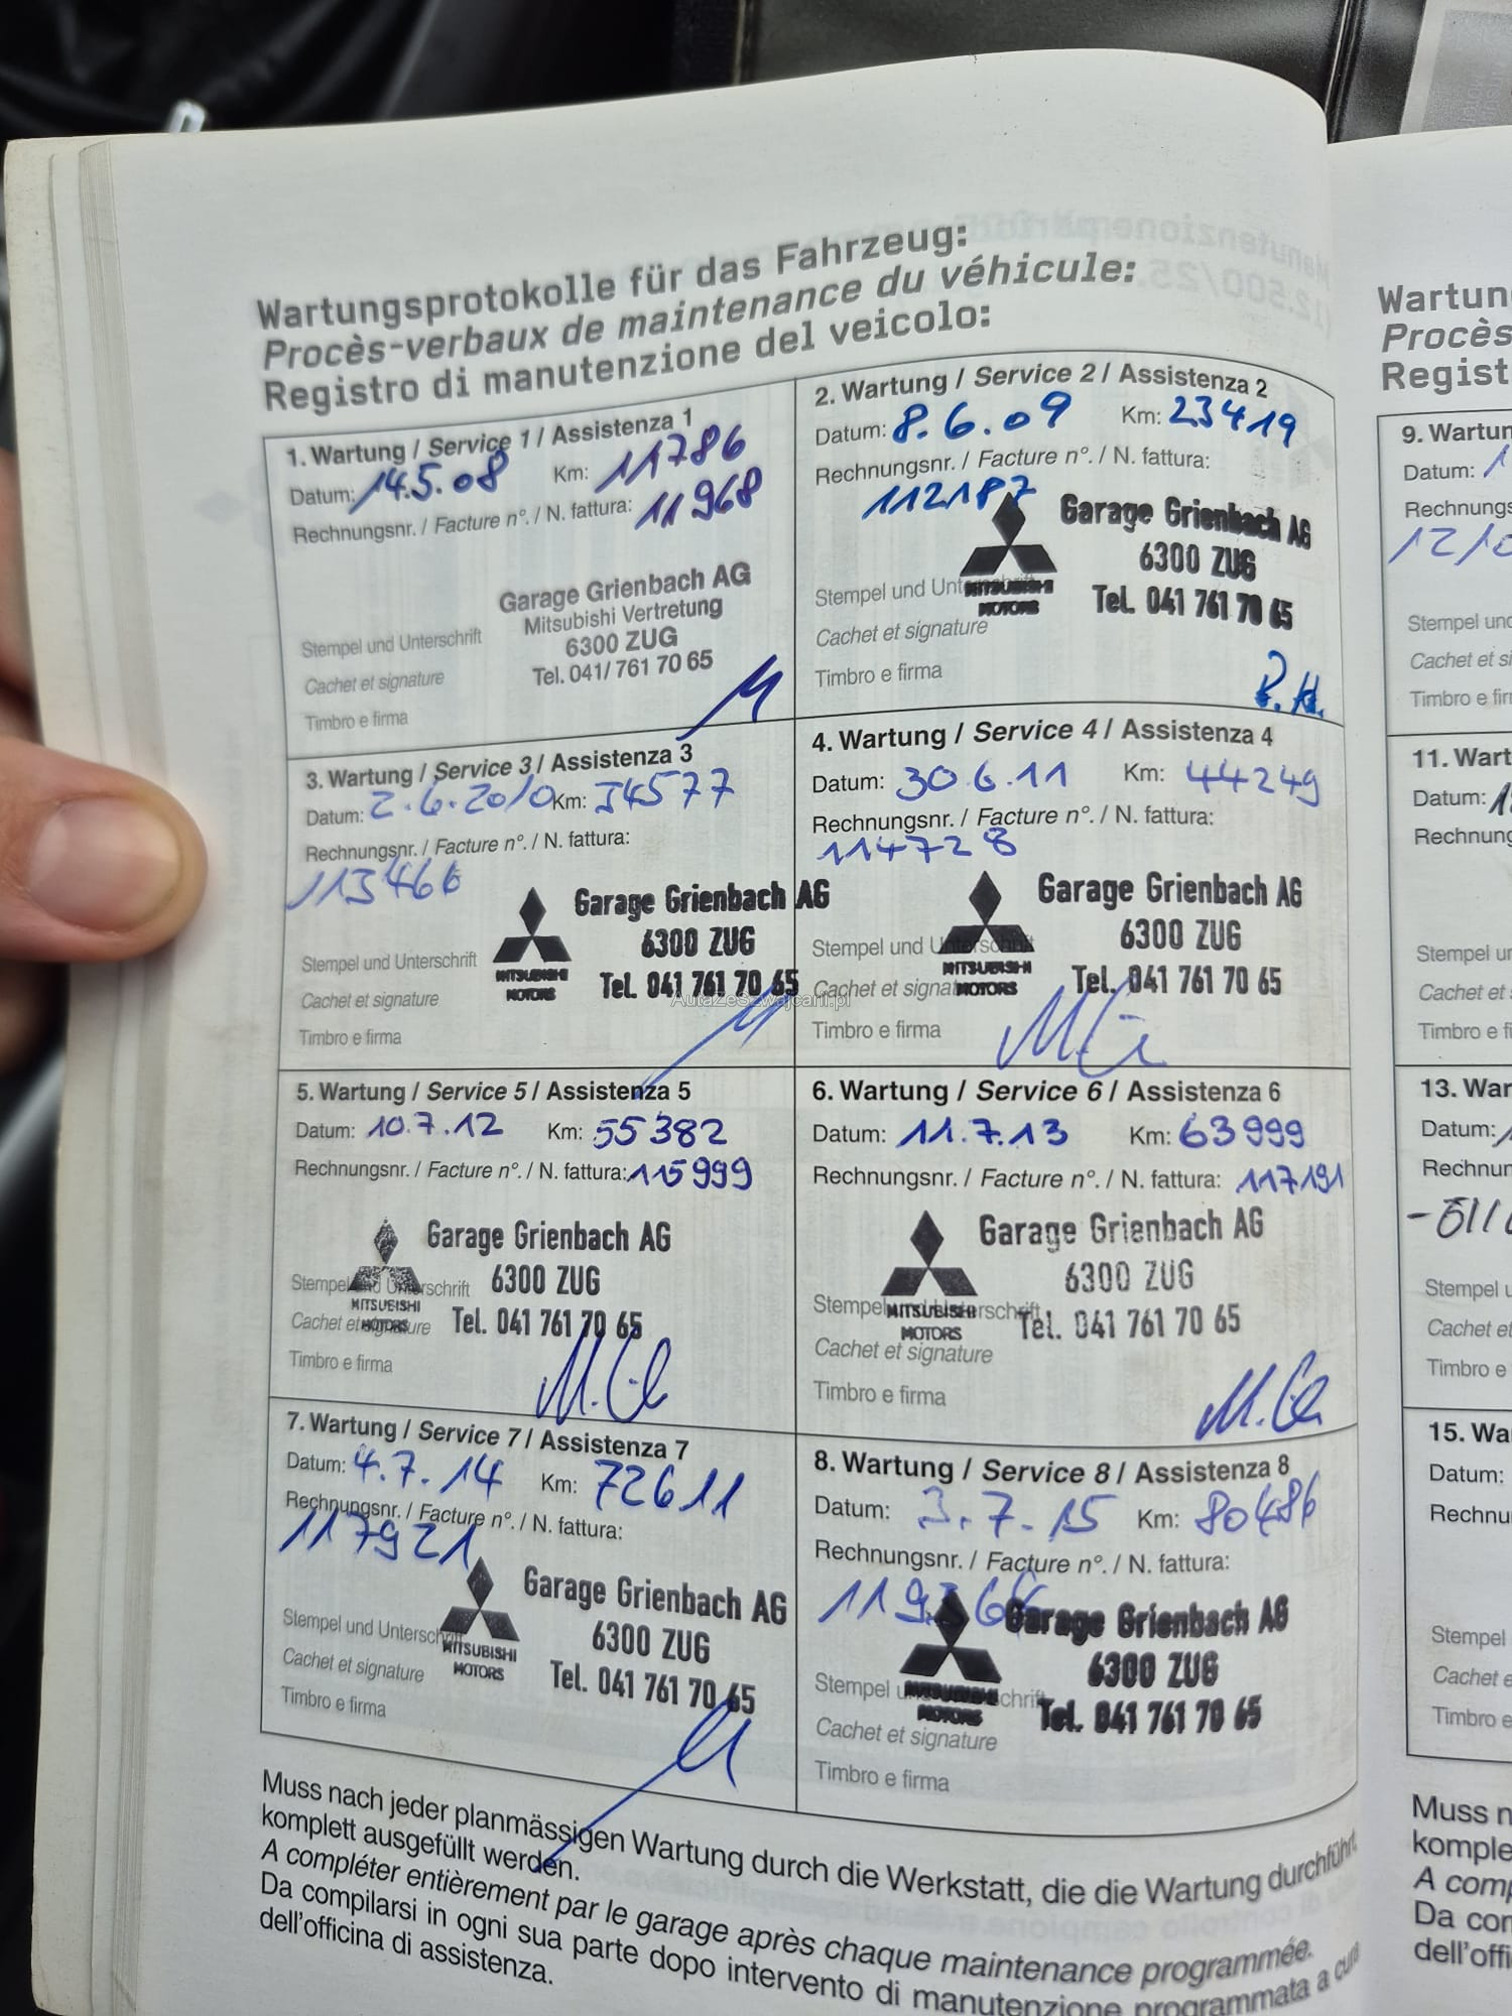 Wartungsprotokolle für das Fahrzeug:
Procès-verbaux de maintenance du véhicule:
Registro di manutenzione del veicolo:
1. Wartung / Service 1 / Assistenza 1
Datum: 14.5.08 Km: 11786
Rechnungsnr. / Facture n°. / N. fattura: 11968
Garage Grienbach AG
Mitsubishi Vertretung
6300 ZUG
Tel. 041/ 761 70 65
Stempel und Unterschrift
Cachet et signature
Timbro e firma
2. Wartung / Service 2 / Assistenza 2
Datum: 8.6.09 Km: 23419
Rechnungsnr. / Facture n°. / N. fattura:
112187
Garage Grienbach AG
6300 ZUG
Tel. 041 761 70 65
MITSUBISHI
MOTORS
Stempel und Unterschrift
Cachet et signature
Timbro e firma
3. Wartung / Service 3 / Assistenza 3
Datum: 2.6.2010 Km: 34577
Rechnungsnr. / Facture n°. / N. fattura:
113466
Garage Grienbach AG
6300 ZUG
Tel. 041 761 70 65
MITSUBISHI
MOTORS
Stempel und Unterschrift
Cachet et signature
Timbro e firma
AutaZeSzwajcarii.pl
4. Wartung / Service 4 / Assistenza 4
Datum: 30.6.11 Km: 44249
Rechnungsnr. / Facture n°. / N. fattura:
114728
Garage Grienbach AG
6300 ZUG
Tel. 041 761 70 65
MITSUBISHI
MOTORS
Stempel und Unterschrift
Cachet et signature
Timbro e firma
5. Wartung / Service 5 / Assistenza 5
Datum: 10.7.12 Km: 55382
Rechnungsnr. / Facture n°. / N. fattura: 115999
Garage Grienbach AG
6300 ZUG
Tel. 041 761 70 65
MITSUBISHI
MOTORS
Stempel und Unterschrift
Cachet et signature
Timbro e firma
6. Wartung / Service 6 / Assistenza 6
Datum: 11.7.13 Km: 63999
Rechnungsnr. / Facture n°. / N. fattura: 117191
Garage Grienbach AG
6300 ZUG
Tel. 041 761 70 65
MITSUBISHI
MOTORS
Stempel und Unterschrift
Cachet et signature
Timbro e firma
7. Wartung / Service 7 / Assistenza 7
Datum: 4.7.14 Km: 72611
Rechnungsnr. / Facture n°. / N. fattura:
117921
Garage Grienbach AG
6300 ZUG
Tel. 041 761 70 65
MITSUBISHI
MOTORS
Stempel und Unterschrift
Cachet et signature
Timbro e firma
8. Wartung / Service 8 / Assistenza 8
Datum: 3.7.15 Km: 80486
Rechnungsnr. / Facture n°. / N. fattura:
Garage Grienbach AG
6300 ZUG
Tel. 041 761 70 65
MITSUBISHI
MOTORS
Stempel und Unterschrift
Cachet et signature
Timbro e firma
Muss nach jeder planmässigen Wartung durch die Werkstatt, die die Wartung durchführt
komplett ausgefüllt werden.
A compléter entièrement par le garage après chaque maintenance programmée.
Da compilarsi in ogni sua parte dopo intervento di manutenzione programmata a cura
dell'officina di assistenza.
Wartun
Procès
Regist
9. Wartun
Datum: 1
Rechnungs
Stempel und
Cachet et si
Timbro e firm
11. Wart
Datum:
Rechnung
Stempel ur
Cachet et
Timbro e fi
13. War
Datum:
Rechnun
Stempel u
Cachet et
Timbro e
15. Wa
Datum:
Rechnu
Stempel
Cachet e
Timbro e
Muss n
komple
A comp
Da cor
dell'offi